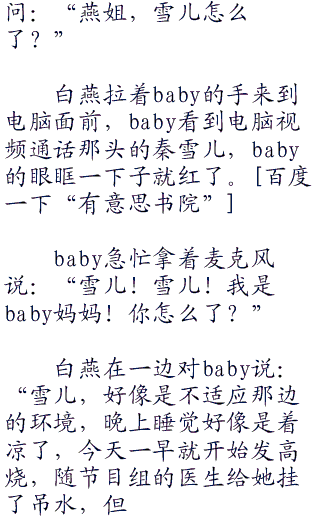 问：“燕姐，雪儿怎么
了？”
白燕拉着baby的手来到
电脑面前，baby看到电脑视
频通话那头的秦雪儿，baby
的眼眶一下子就红了。[百度
一下“有意思书院”]
baby急忙拿着麦克风
说：“雪儿！雪儿！我是
baby妈妈！你怎么了？”
白燕在一边对baby说：
“雪儿，好像是不适应那边
的环境，晚上睡觉好像是着
凉了，今天一早就开始发高
烧，随节目组的医生给她挂
了吊水，但